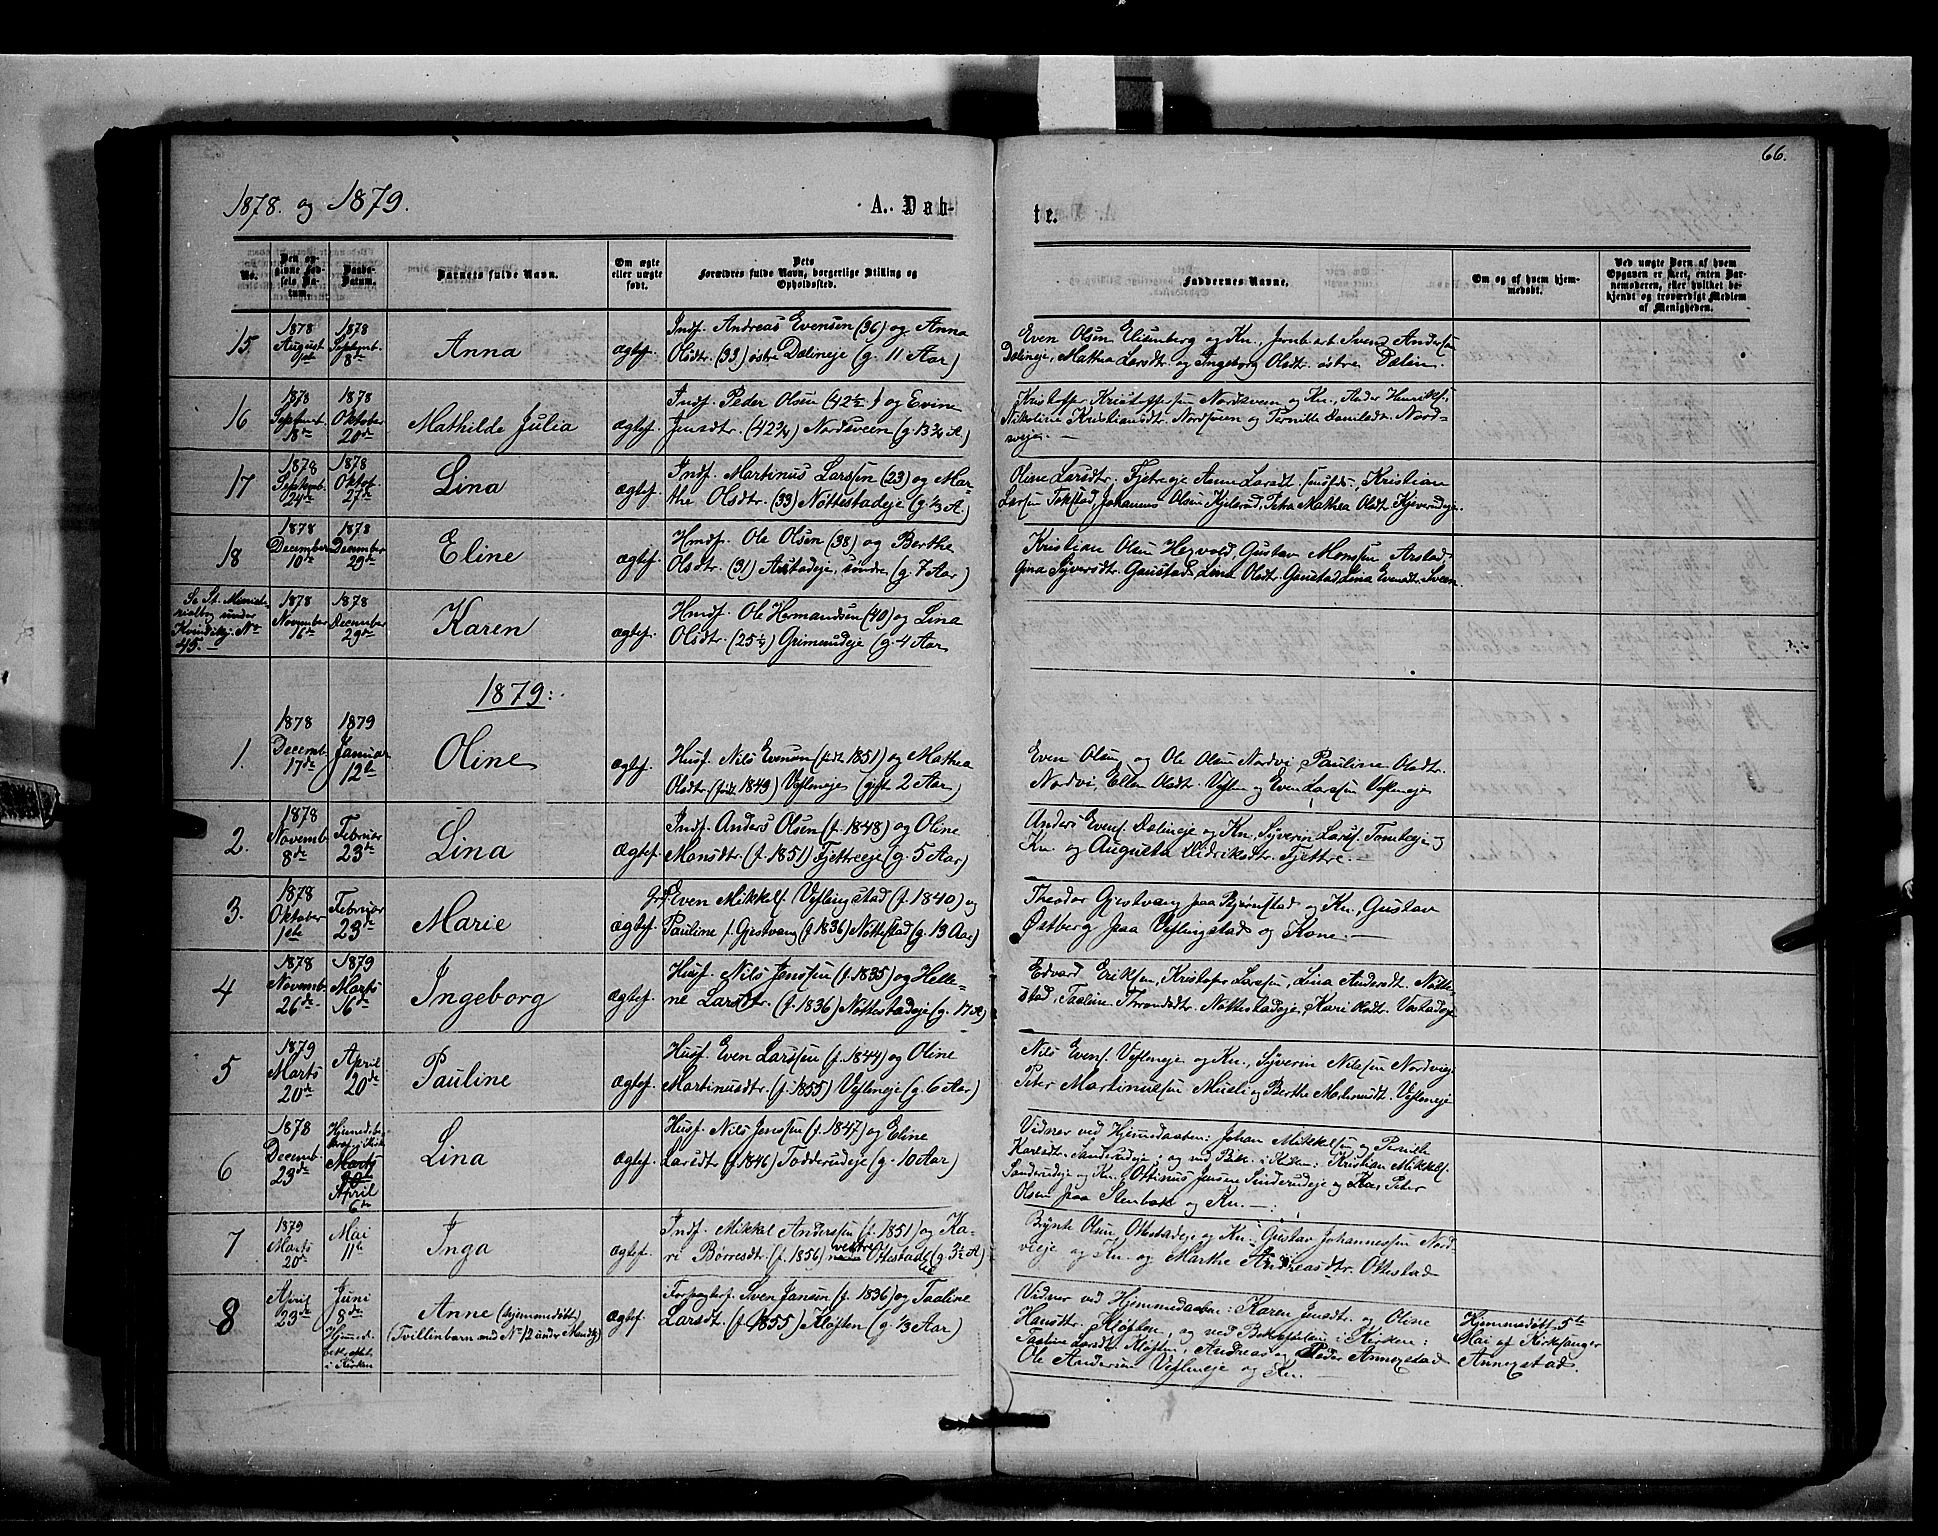 66.
1878. og 1879.
A. Døb-
te.
No.
Den op-
givne Fød-
sels Da-
tum.
Daabs-
Datum.
Barnets fulde Navn.
Om ægte
eller uægte
født.
Dets
Forældres fulde Navn, borgerlige Stilling og
Opholdssted.
Faddernes Navne.
Om og af hvem hjem-
medøbt.
Ved uægte Børn af hvem
Opgaven er skeet, enten Bar-
nemoderen, eller hvilket be-
kjendt og troværdigt Medlem
af Menigheden.
15
1878
August
9de
1878
Septemb.
8de
Anna
ægtef.
Indf. Andreas Evensen (36) og Anna
Olsdtr. (33) østre Dælineje (g. 11 Aar)
Even Olsen Elisenberg og Kn, Jernb.arb. Svend Anders
Dælineje, Mathea Larsdtr. og Ingeborg Olsdtr. østre Dælin.
16
1878
Septemb.
18de
1878
Oktober
20de
Mathilde Julia
ægtef.
Indf. Peder Olsen (42½) og Evine
Jensdtr. (42¾) Nordsveen (g. 13¾ A)
Kristoffer Kristoffersen Nordsveen og Kn, Peder Henriks.
Nikoline Kristiansdt. Nordsveen og Pernille Danielsdt. Nord-
sveje. —
17
1878
Septemb.
24de
1878
Oktob.
27de
Lina
ægtef.
Indf. Martinus Larssen (23) og Mar-
the Olsdtr. (33) Nøttestadeje (g. ⅓ A)
Oline Larsdtr. Fjetreje Anne Larsdt sammesteds, Kristian
Larsen Tokstad, Johannes Olsen Kjelsrud, Petra Mathea Olsdt Kjeverudeje.
18
1878
December
10de
1878
December
29de
Eline
ægtef.
Hmdf. Ole Olsen (38) og Berthe
Olsdtr. (31) Arstadeje, søndre (g 7 Aar)
Kristian Olsen Hegvold, Gustav Monsen Arstad,
Gina Syversdtr. Gaustad Lina Olsdtr. Gaustad Lina Evensdt. Sveen
Se St. Minist-
erialbog under
Kvindekj. No
45. —
1878
November
16de
1878
December
29de
Karen
ægtef.
Hmdf. Ole Hermandsen (40) og Lina
Olsdtr. (25½) Grimerudeje (g. 4 Aar
1879:
1.
1878
Decemb.
17de
1879
Januar
12te
Oline
ægtef.
Husf. Nils Evensen (født 1851) og Mathea
Olsdtr. (født 1849) Vefleneje (gift 2 Aar)
Even Olsen og Ole Olsen Nordvi, Pauline Olsdtr.
Nordvi, Ellen Olsdt. Veflen og Even Larssen Vefleneje
2.
1878
Novemb.
8de
Februar
23de
Lina
Ægtef.
Indf. Anders Olsen (f. 1848) og Oline
Monsdtr. (f. 1851) Fjettreeje (g. 5 Aar)
Anders Evens. Dælineje og Kn, Syverin Larsf. Tomteeje og
Kn. og Augusta Didriksdtr. Fjettre. —
3.
1878
Oktober
1ste
Februar
23de
Marie
ægtef.
Grdf. Even Mikkels. Veflingstad (f. 1840) og
Pauline f. Gjestvang (f. 1836) Nøttestad (g. 13 Aar)
Theodor Gjestvang paa Bjørnstad og Kn, Gustav
Østberg paa Veflingstad og Kone. —
4
1878
Novemb.
26de
1879
Marts
16de
Ingeborg
ægtef.
Husf. Nils Jenssen (f. 1835) og Helle-
ne Larsdtr. (f. 1836) Nøttestadeje (g. 17 A)
Edvard Eriksen, Kristofer Larssen, Lina Andersdt. Nøtte-
stad, Taaline Throndsdt. Nøttestadeje, Kari Olsdt. Vestadeje
5
1879
Marts
20de
April
20de
Pauline
Ægtef.
Husf. Even Larssen (f. 1844) og Oline
Martinusdtr. (f. 1855) Vefleneje (g. 6 Aar)
Nils Evens. Vefleneje og Kn, Syverin Nilsen Nordvieje
Peter Martinussen Musli og Berthe Martinusdt. Vefleneje
6
1878
Decemb.
23de
Hjemmedøbt
Marts
April
6te
Lina
ægtef.
Husf. Nils Jenssen (f. 1847) og Eline
Larsdt (f. 1846) Todderudeje (g. 10 Aar)
Vidner ved Hjemmedaaben: Johan Mikkelsen og Pernille
Karlsdt. Sanderudeje; og ved Bekr. i Kirken: Kristian Mikkels.
Sanderudeje og Kn, Ottinus Jensen Sanderudeje og Peter
Olsen paa Stenbæk og Kn. —
7
1879
Marts
20de
Mai
11te
Inga
ægtef.
Indf. Mikkel Anderssen (f. 1851) og Ka-
ri Børresdt. (f. 1856) vestre Ottestadeje (g. 3½ A)
Brynte Olsen Ottestadeje og Kn. Gustav Johannessen Nord-
vieje og Kn. og Marthe Andreasdtr. Ottestad
8
April
23de
Juni
8de
Hjemmed.
bekræftet
i Kirken
Anne (hjemmedøbt)
(Tvillinbarn med No 12 under Mandkj.)
ægtef.
Forpagter Sven Jansen (f. 1836) og Taaline
Larsdt. (f. 1855) Kløften (g. ⅓ Aar)
Vidner ved Hjemmedaaben: Karen Jensdt. og Oline
Hansdtr. Kløften, og ved Bekræftelsen i Kirken:
Taaline Larsdt. Kløften, Andreas og Peder Annexstad
Ole Andersen Vefleneje og Kn. —
Hjemmedøbt 5te
Mai af Kirkesanger
Annexstad.